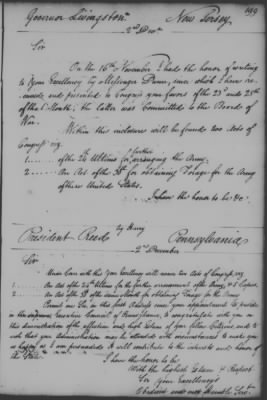 199
Governor Livingston New Jersey,
2nd Decr
Sir
On the 16th November I had the honor of writing
to Your Excellency by Messenger Dunn, since which I have re
ceived and presented to Congress your favors of the 23d and 25th
of the same Month; the latter was Committed to the Board of
War.
Within this inclosure will be found two Acts of
Congress viz.
1 of the 24 Ultimo for further arranging the Army.
2 An Act of the for obtaining Forage for the Army
of these United States.
I have the honor to be &c.
President Reed by Henry Pennsylvania
2nd December
Sir
Under Cover with this Your Excellency will receive two Acts of Congress viz
1 An Act of 24th Ultimo for the further arrangement of the Army, &
2 An Act of of the same Month for obtaining Forage for the Army
Permit me Sir in this first Address since your appointment to preside
in the Executive Council of Pennsylvania, to congratulate with you on
this demonstration of the affection and high Esteem of your fellow Citizens, and to
wish that your administration may be attended with circumstances to make you
as happy as I am persuaded it will contribute to the interests and honor of
the State
I have the honor to be
With the highest Esteem & Respect
Sir Your Excellency's
Obedient and most Humble Servt.